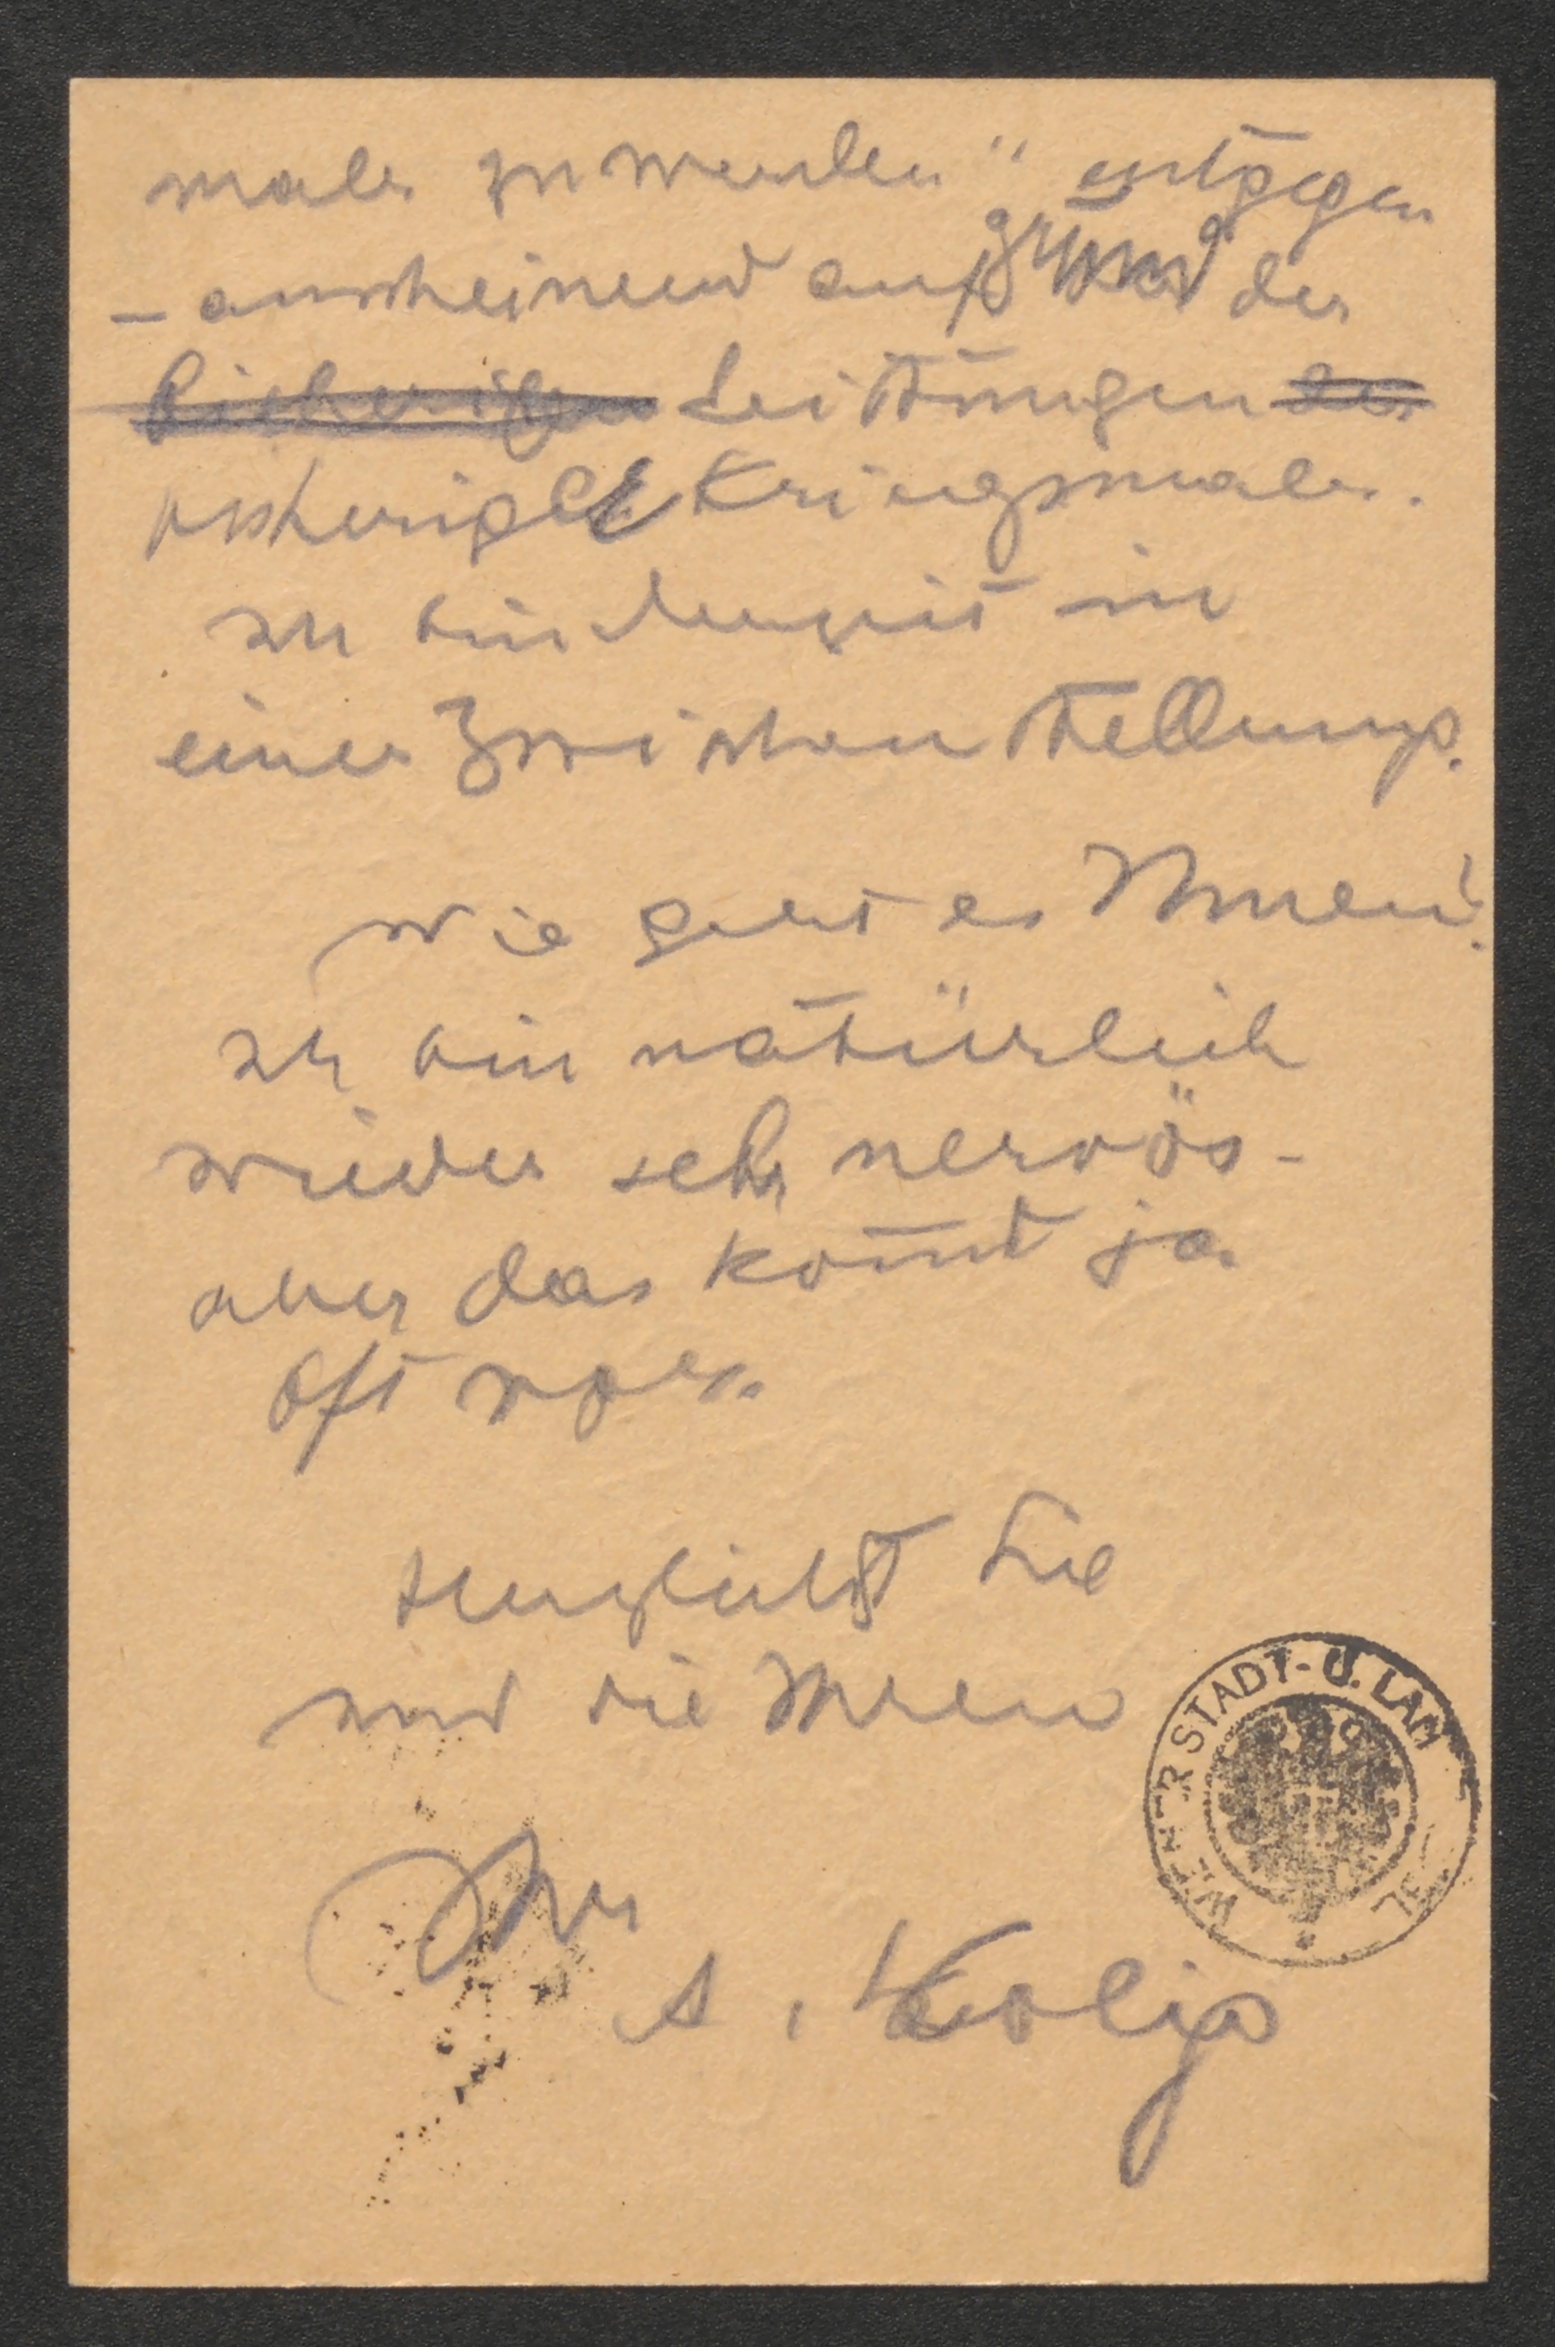 maler zu werden" entgegen
– anscheinend aufgrund der
bisherigen Leistungen der
bisherigen Kriegsmaler.
Ich bin derzeit in
einer Zwischenstellung.
Wie geht es Ihnen?
Ich bin natürlich
wieder sehr nervös –
aber das kom̅t ja
oft vor.
Herzlichst Sie
und die Ihren
Ihr
A. Kolig
WIENER STADT- U. LAN